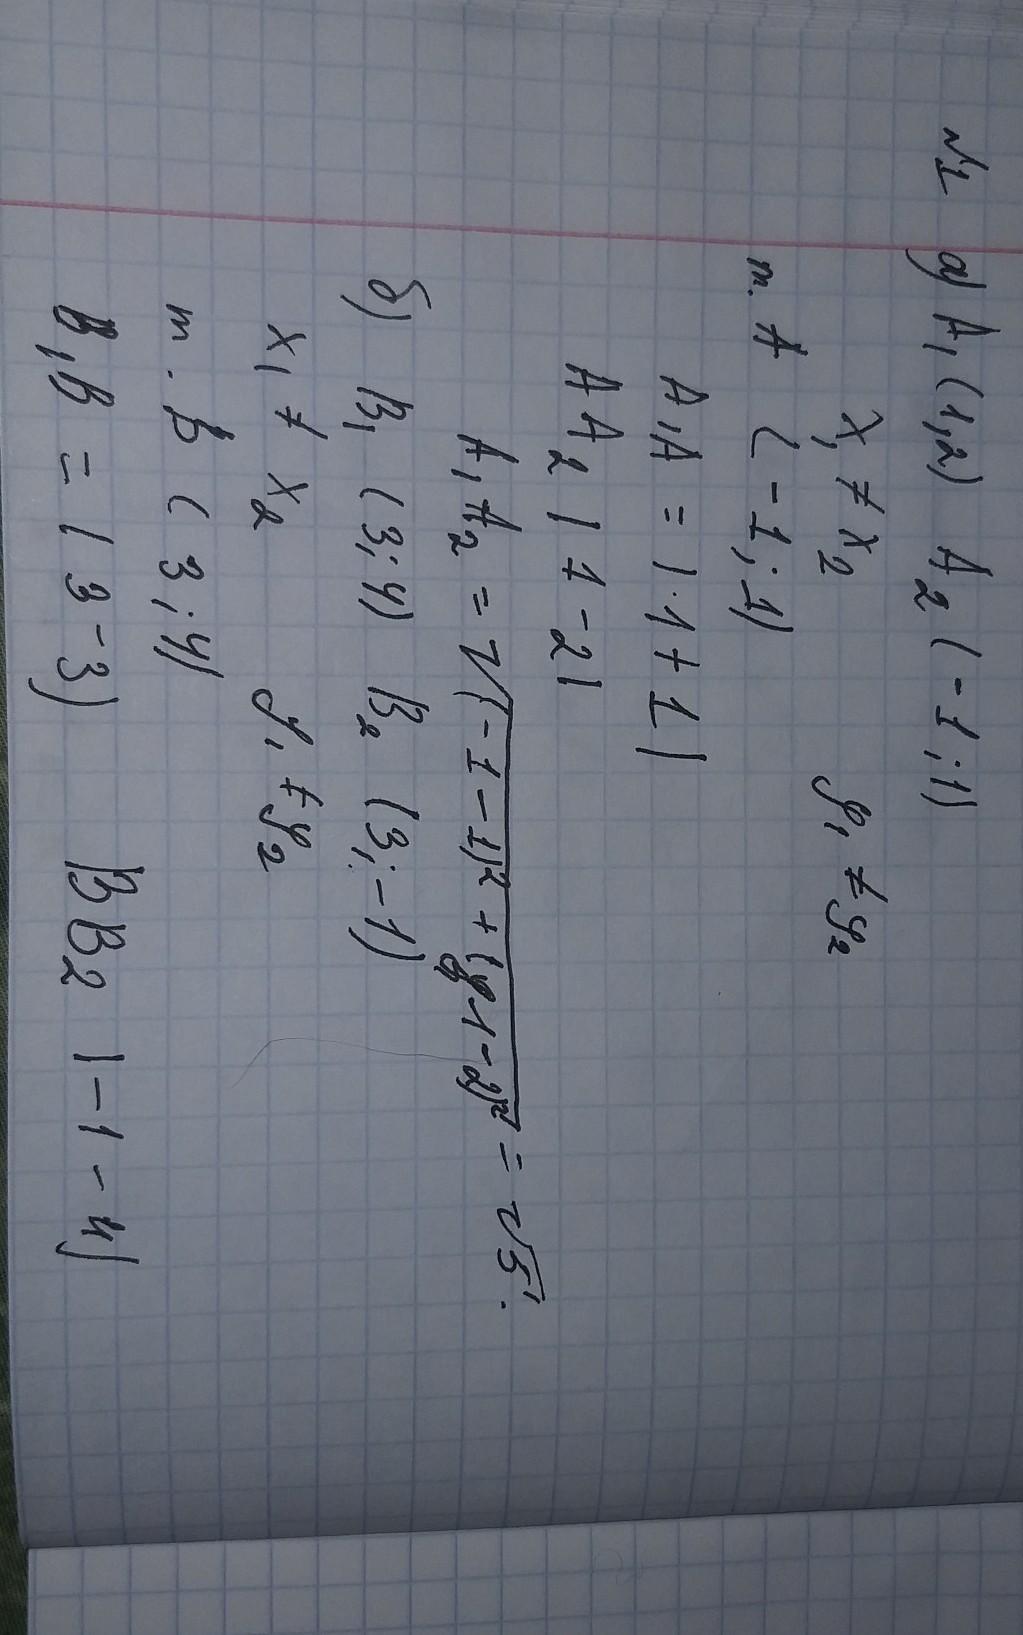 №1 а) A₁(1,2) A₂(-1;1)
x₁ ≠ x₂ y₁ ≠ y₂
т. A (-1;1)
A₁A = |·1+1|
AA₂ |1-2|
A₁A₂ = √(-1-1)² + (1-2)² = √5.
б) B₁ (3;4) B₂ (3;-1)
x₁ ≠ x₂ y₁ ≠ y₂
т. B (3;4)
B₁B = |3-3| BB₂ |-1-4|